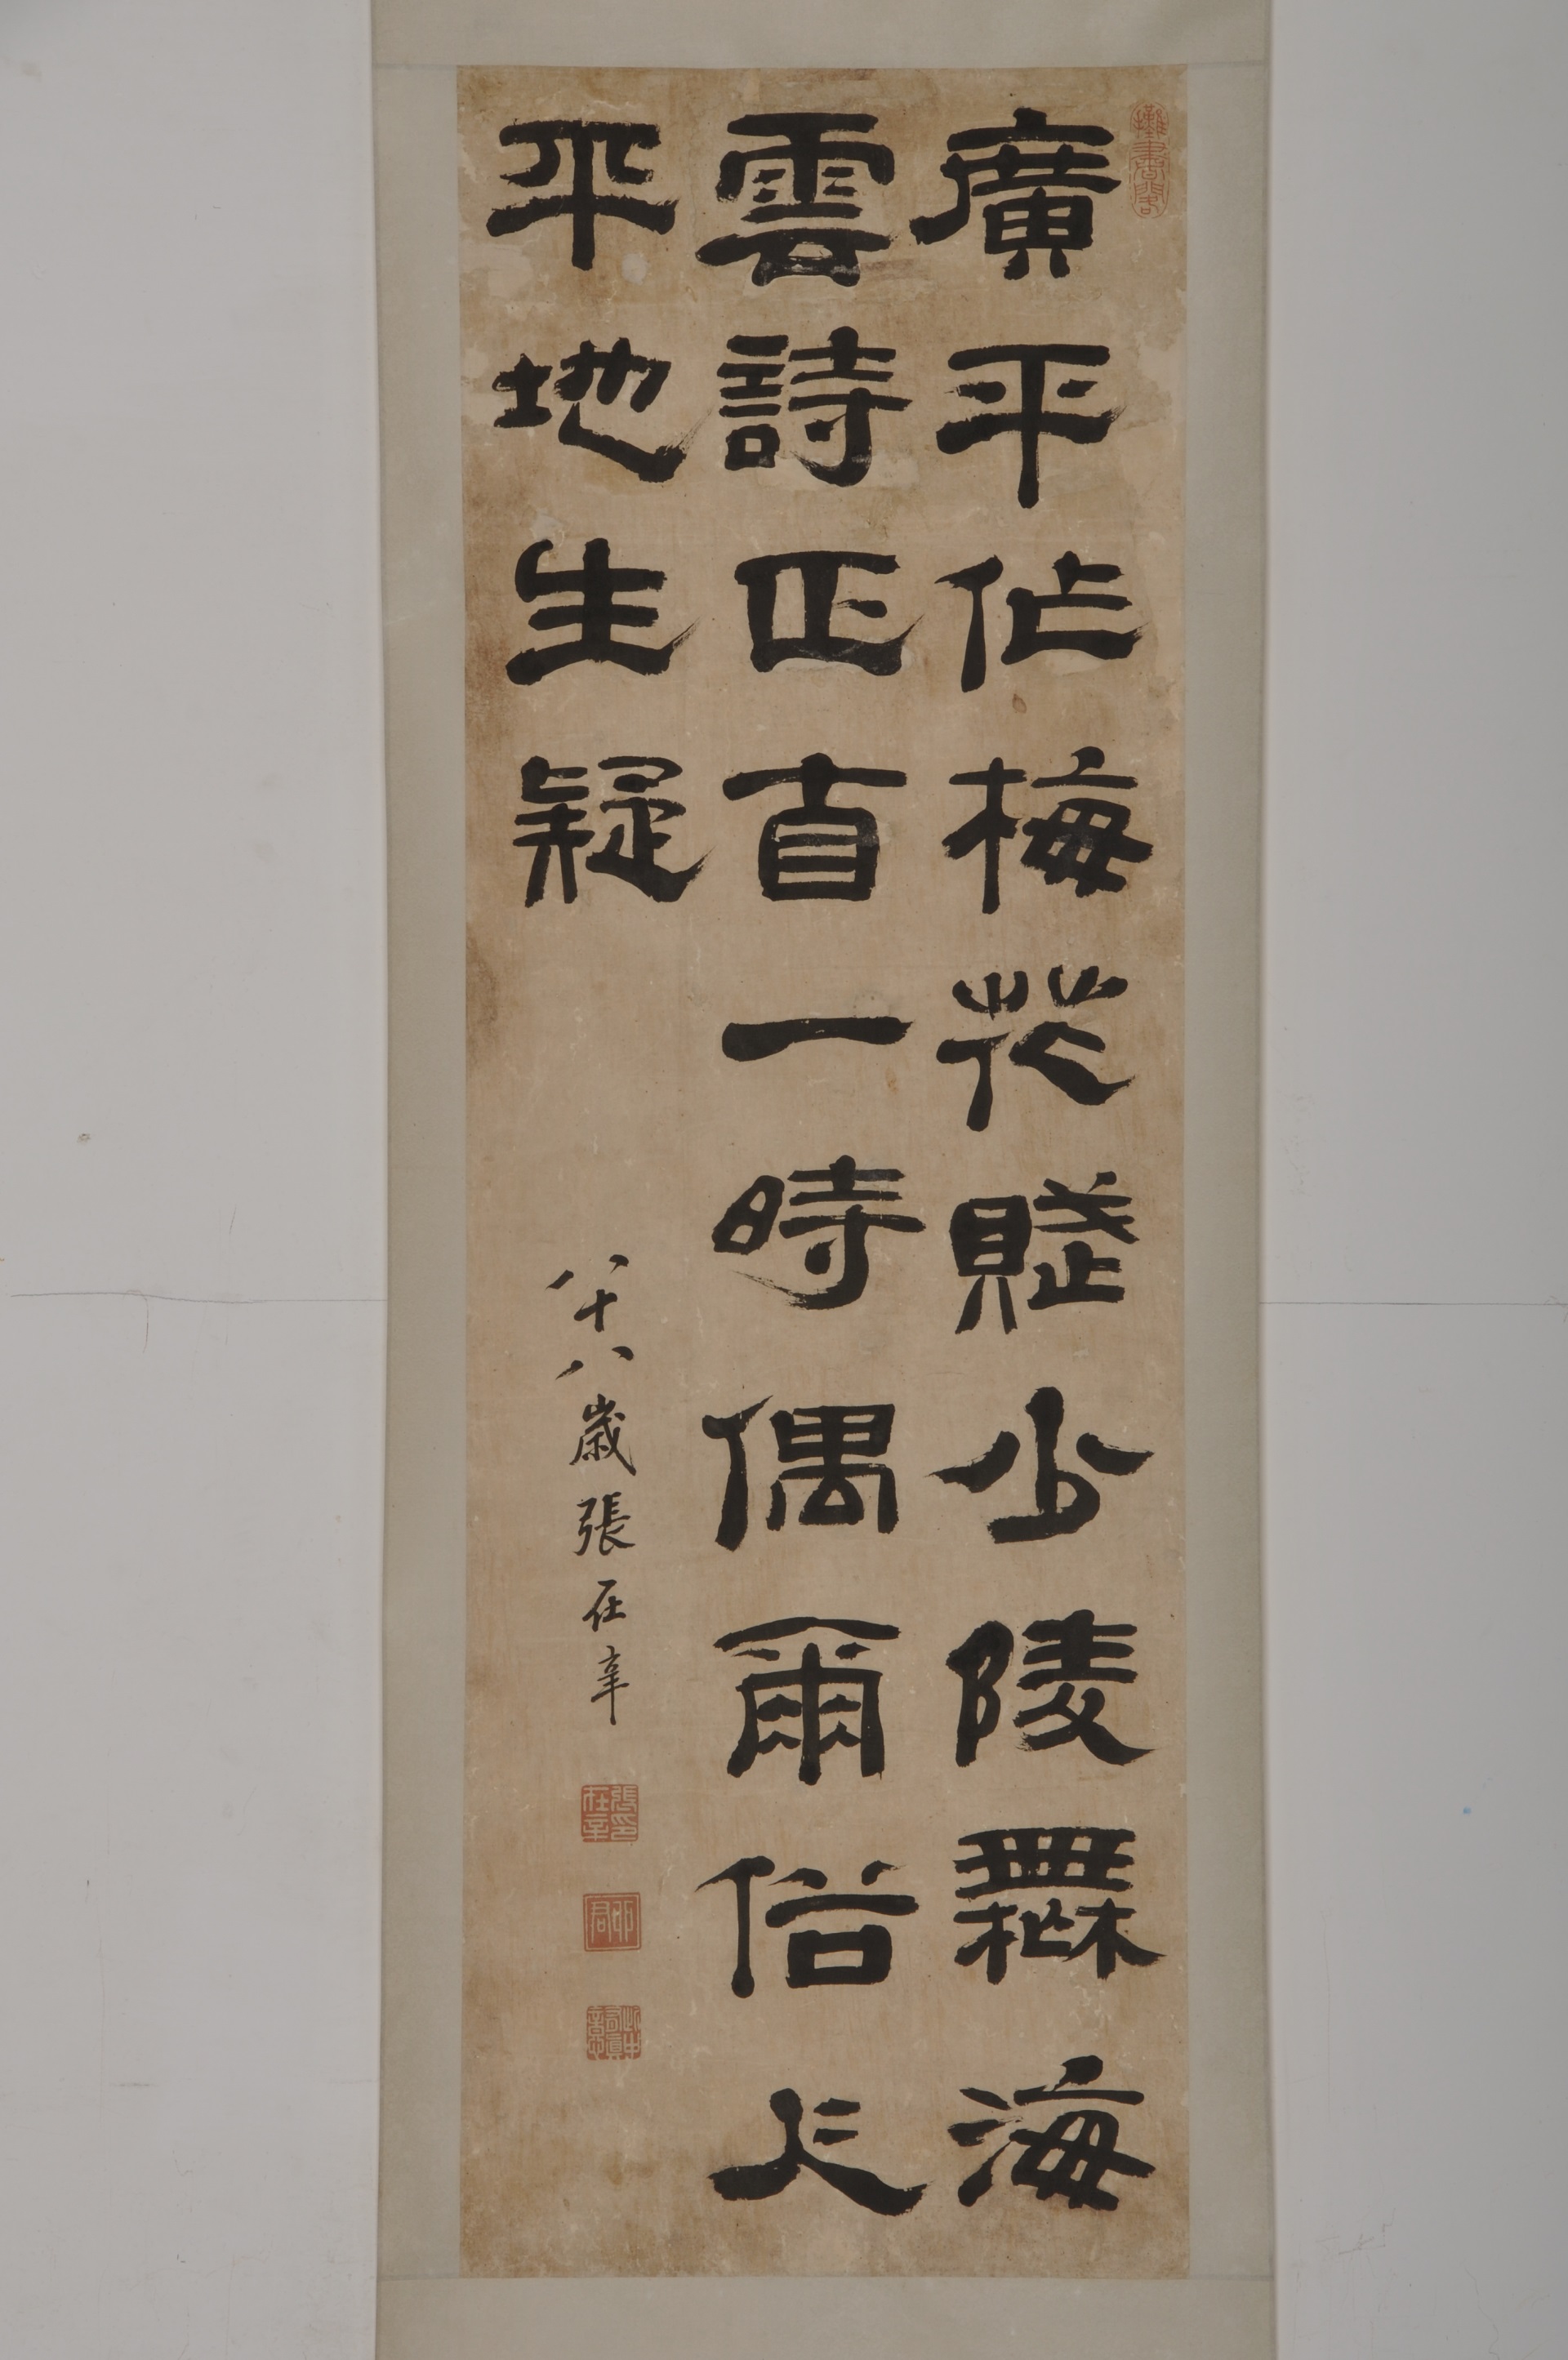 廣平作梅花賦少陵無海
雲詩正直一時偶爾俗人
平地生疑
八十八歲張在辛
張在辛印
卯君